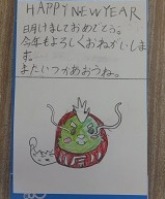 HAPPY NEW YEAR
明けましておめでとう。
今年もよろしくおねがいしま
す。
またいつかあおうね。